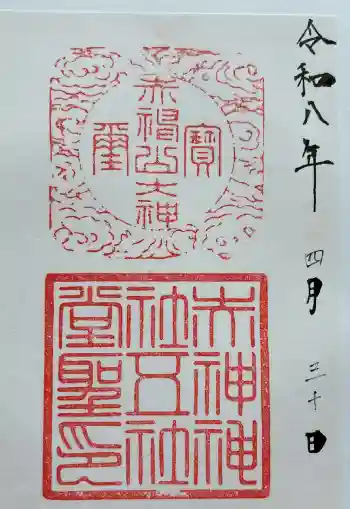 令和八年 四月 三十日
寶
赤山大神
璽
赤神神
社五社
堂聖印